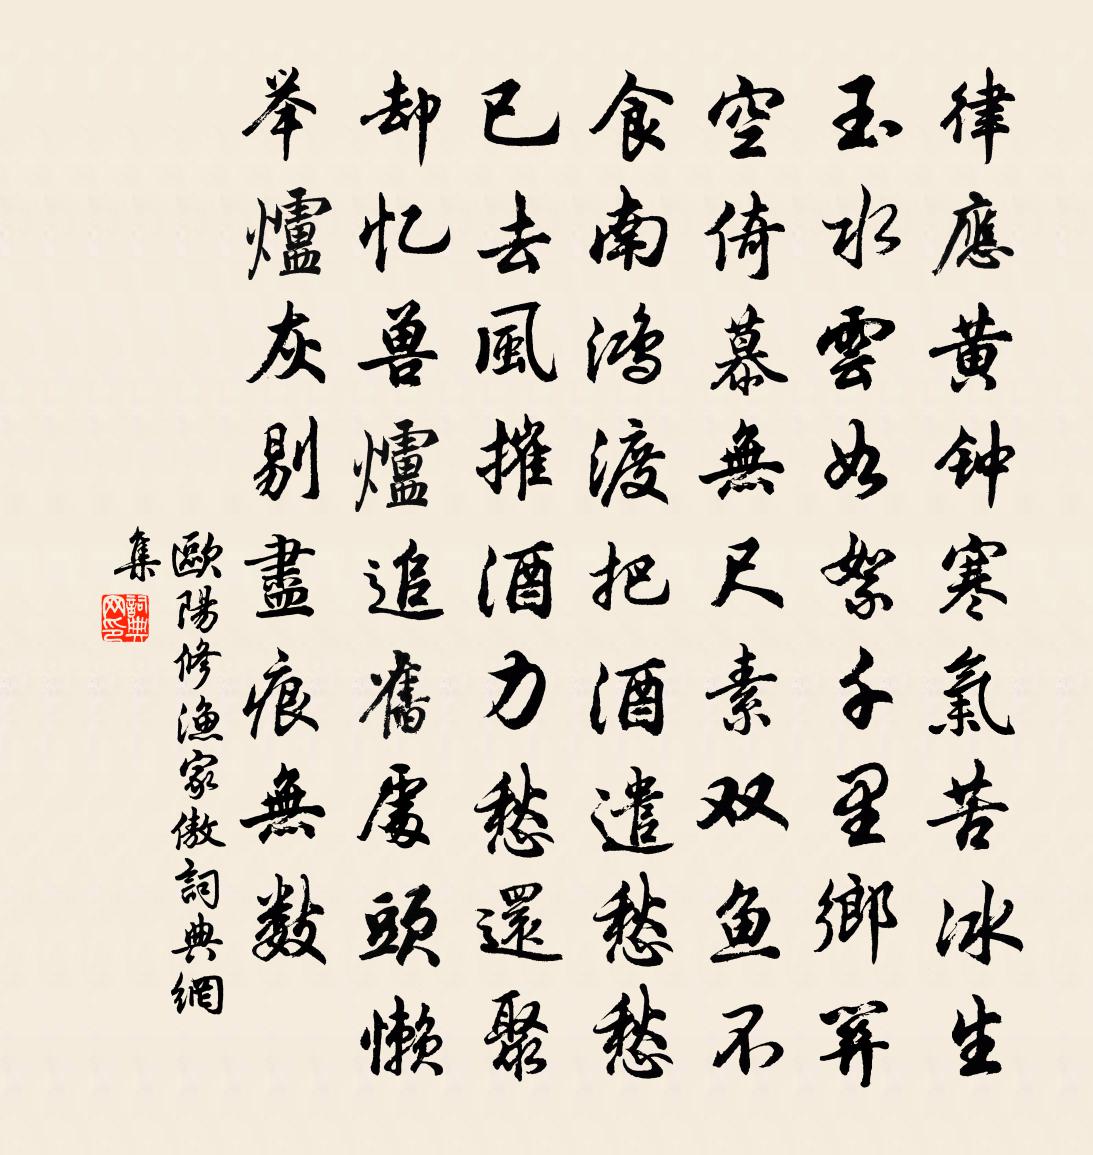 律應黄钟寒氣苦冰生
玉水雲如絮千里鄉关
空倚慕無尺素双鱼不
食南鸿渡把酒遣愁愁
已去風摧酒力愁還聚
却忆兽爐追舊處頭懒
举爐灰剔盡痕無數
歐陽修渔家傲詞典網
集
詞典网印